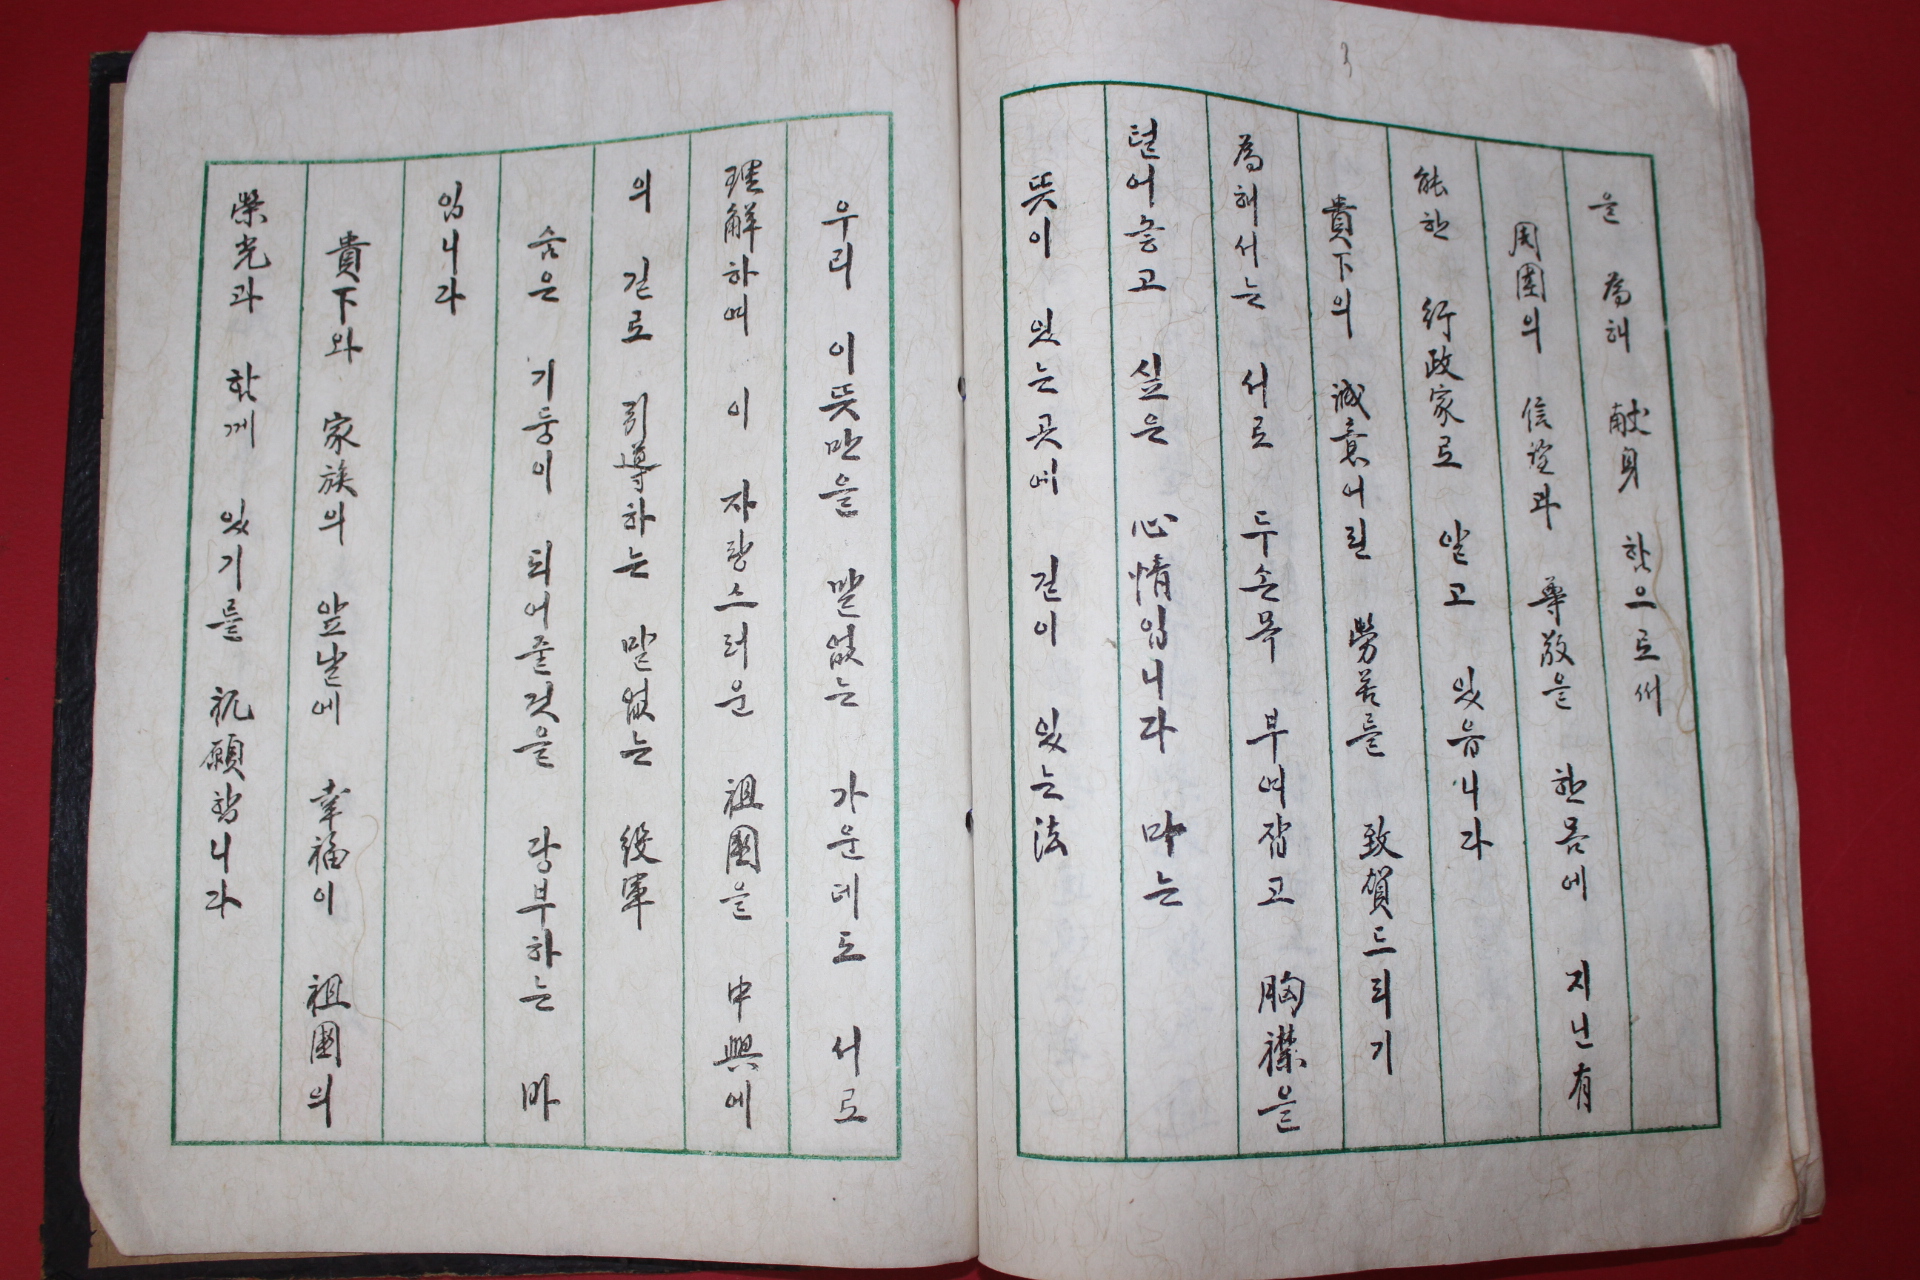 을 爲해 献身 함으로써
周圍의 信望과 尊敬을 한몸에 지닌 有
能한 行政家로 알고 있읍니다
貴下의 誠意어린 勞苦를 致賀드리기
爲해서는 서로 두손목 부여잡고 胸襟을
털어놓고 싶은 心情입니다 마는
뜻이 있는 곳에 길이 있는 法
우리 이뜻만을 말없는 가운데도 서로
理解하여 이 자랑스러운 祖國을 中興에
의 길로 引導하는 말없는 役軍
숨은 기둥이 되어줄것을 당부하는 바
입니다
貴下와 家族의 앞날에 幸福이 祖國의
榮光과 함께 있기를 祝願합니다